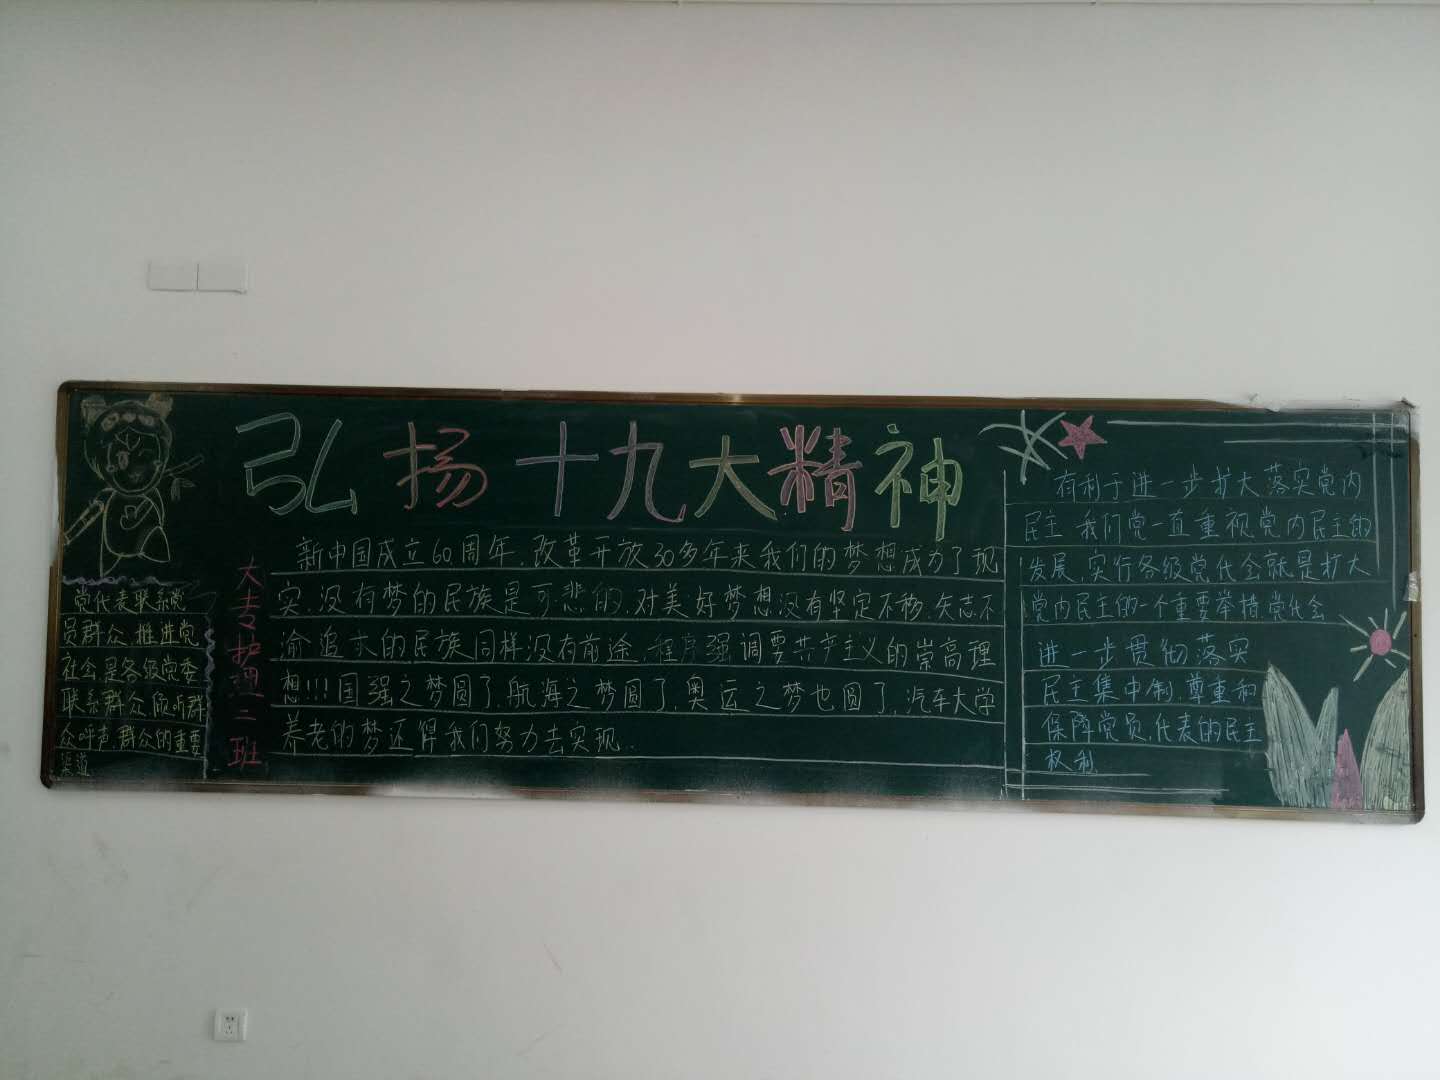 弘扬十九大精神
党代表联系党
员群众,推进党
社会是各级党委
联系群众,倾听群
众呼声,群众的重要
渠道
大专护理二班
新中国成立60周年,改革开放30多年来我们的梦想成为了现
实,没有梦的民族是可悲的,对美好梦想没有坚定不移,矢志不
渝追求的民族同样没有前途,程序强调要共产主义的崇高理
想!!!国强之梦圆了,航海之梦圆了,奥运之梦也圆了,汽车大学
养老的梦还得我们努力去实现..
有利于进一步扩大落实党内
民主,我们党一直重视党内民主的
发展,实行各级党代会就是扩大
党内民主的一个重要举措,党代会
进一步贯彻落实
民主集中制,尊重和
保障党员,代表的民主
权利